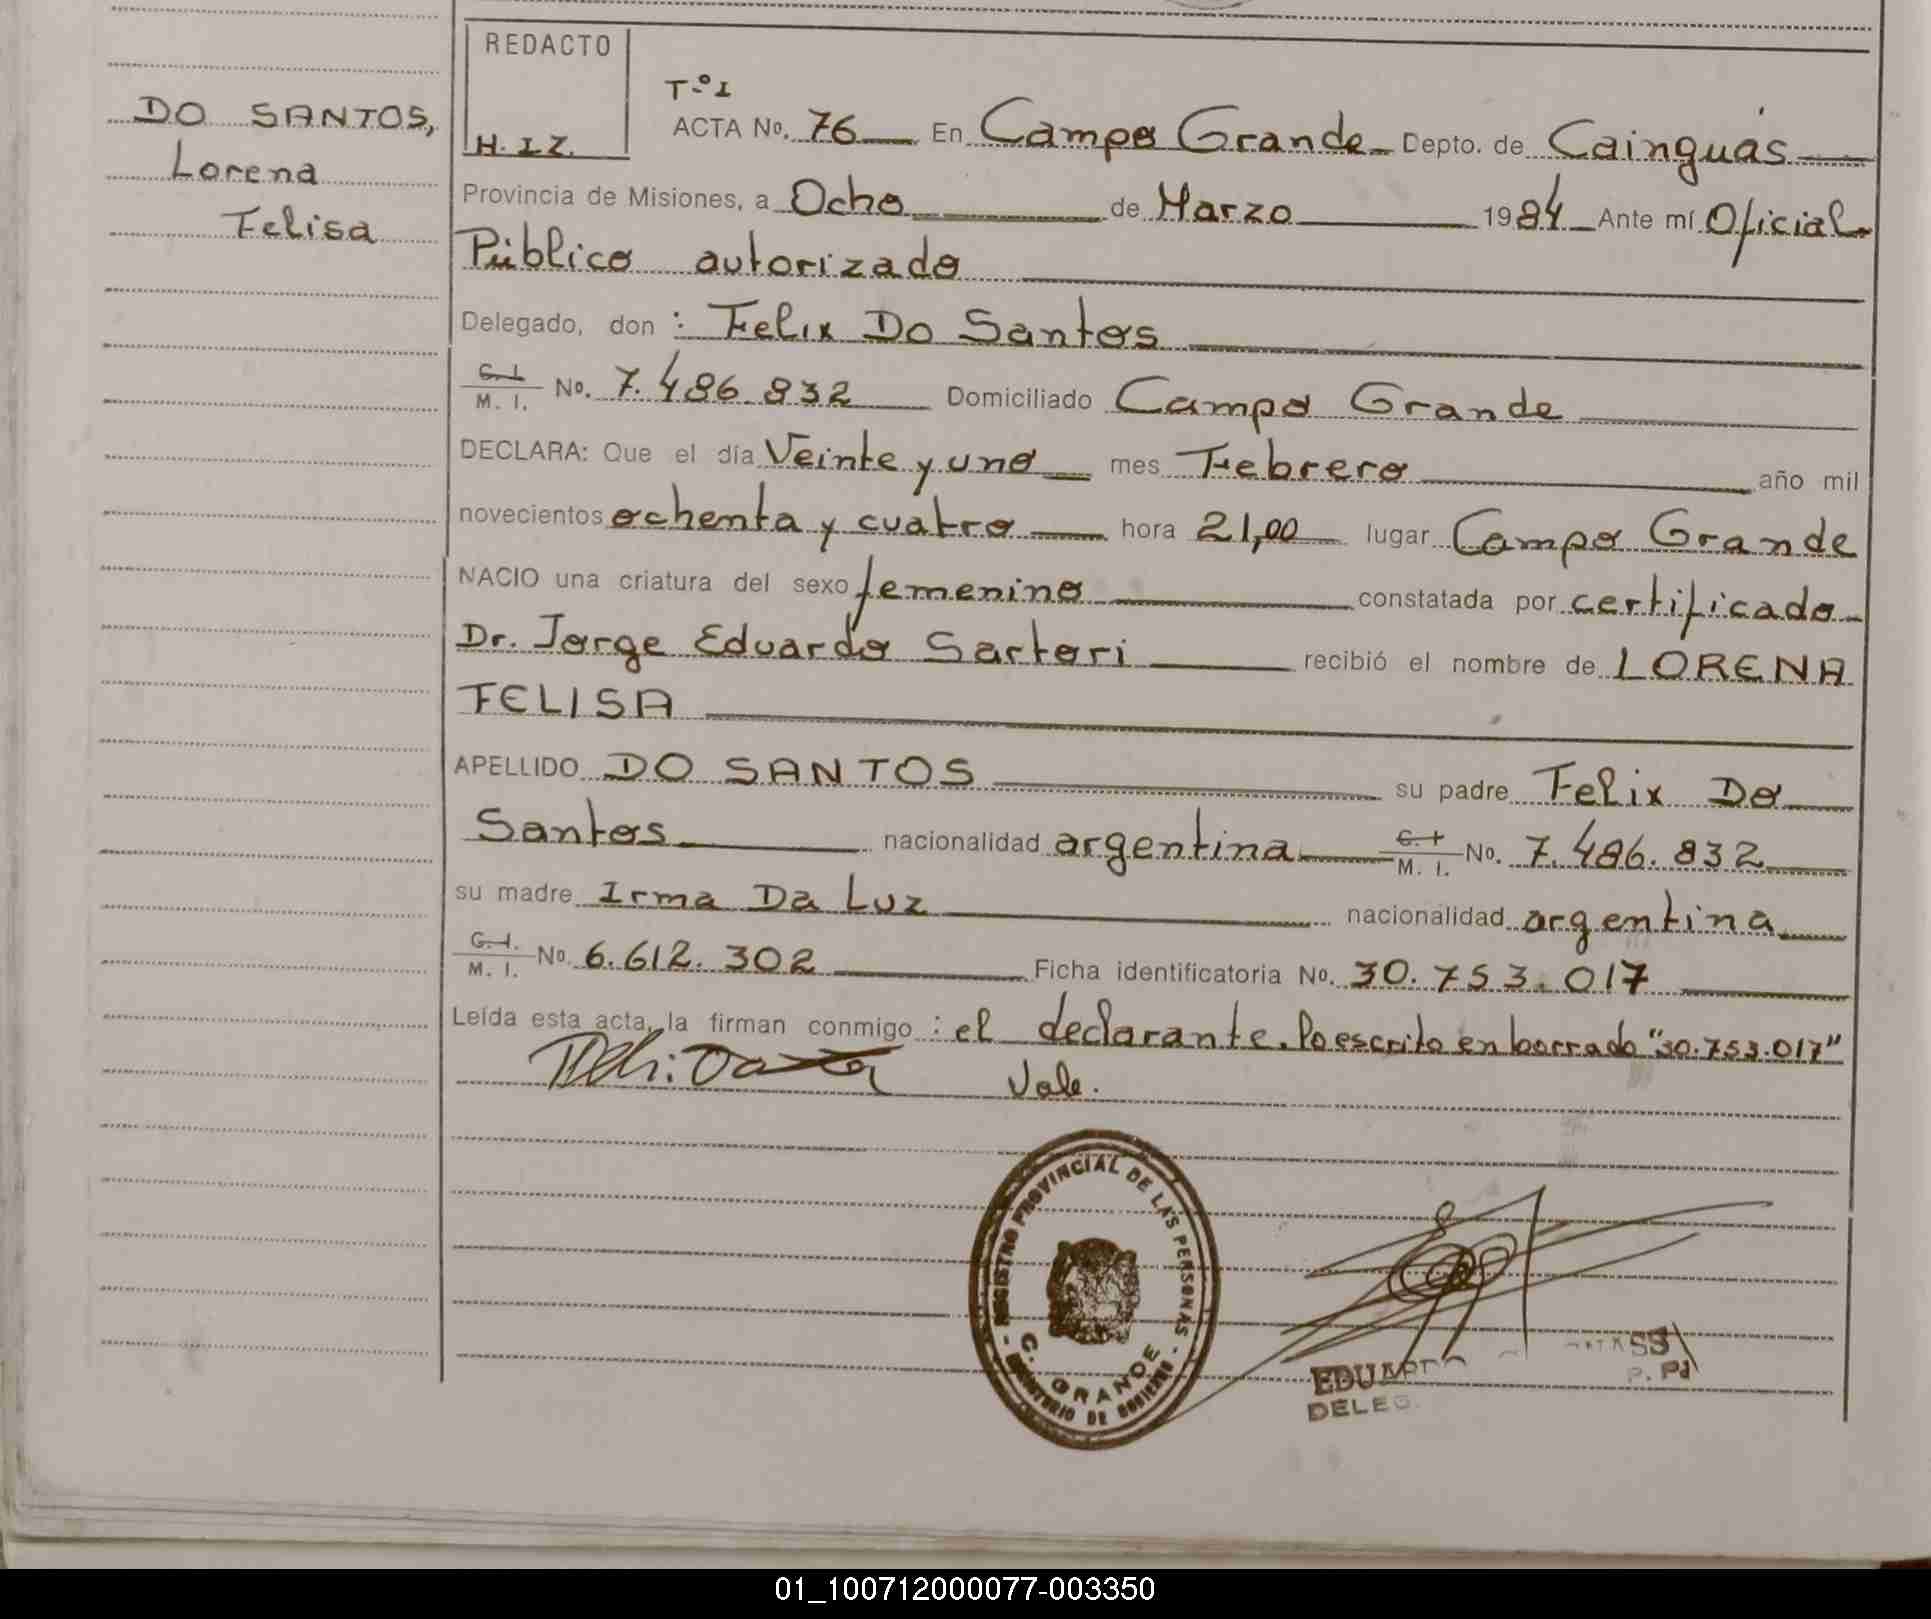 DO SANTOS,
Lorena
Felisa
REDACTO
H. I Z.
T.º I
ACTA No. 76 En Campo Grande Depto. de Cainguás
Provincia de Misiones, a Ocho de Marzo 1984 Ante mí Oficial
Público autorizado
Delegado, don : Felix Do Santos
C. I. / M. I. No. 7.486.832 Domiciliado Campo Grande
DECLARA: Que el día Veinte y uno mes Febrero año mil
novecientos ochenta y cuatro hora 21,00 lugar Campo Grande
NACIO una criatura del sexo femenino constatada por certificado
Dr. Jorge Eduardo Sartori recibió el nombre de LORENA
FELISA
APELLIDO DO SANTOS su padre Felix Do
Santos nacionalidad argentina C. I. / M. I. No. 7.486.832
su madre Irma Da Luz nacionalidad argentina
C. I. / M. I. No. 6.612.302 Ficha identificatoria No. 30.753.017
Leída esta acta, la firman conmigo : el declarante. Lo escrito en borrado "30.753.017"
Vale.
REGISTRO PROVINCIAL DE LAS PERSONAS
C. GRANDE
- MINISTERIO DE GOBIERNO -
DELEG.
01_100712000077-003350